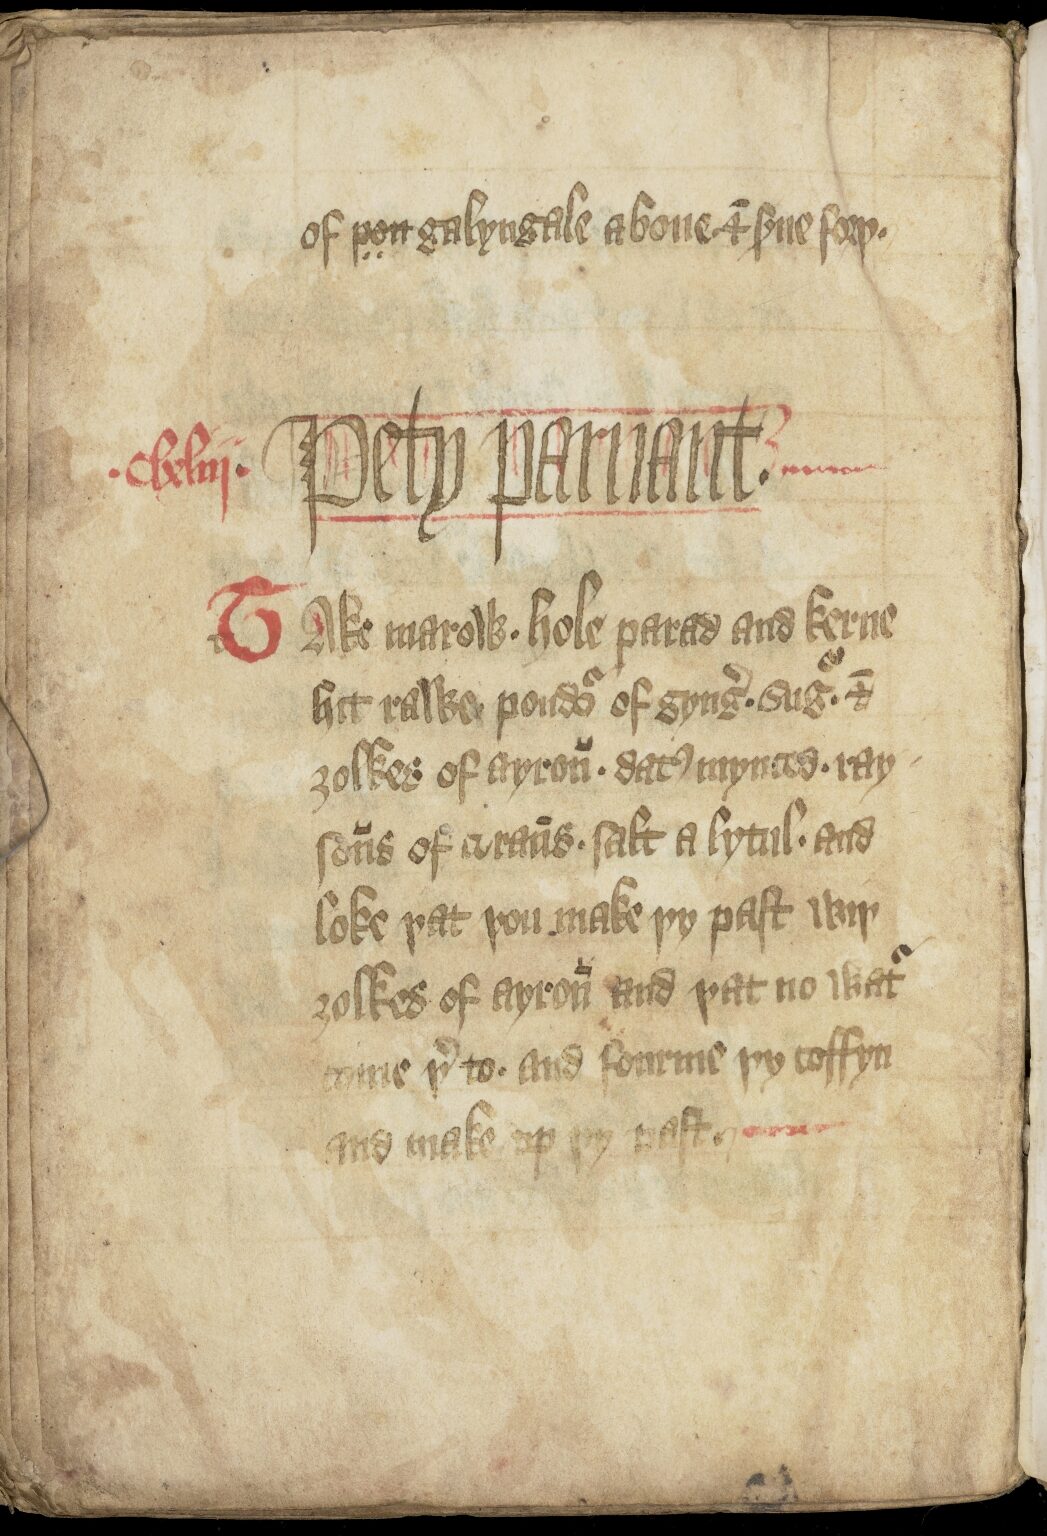 of pon galyngale aboue · & ẏne forþ ·
· Cxxliij · Pety paruant ·
TAke marow · hole parad and kerue
hit rawe pondoʳ of gyng̕ · sugᵃ · &
ȝolkes of ayroū · dat̕ mynced · ray
soūs of coraūs · salt a lytul · and
loke þat þou make þy past wiþ
ȝolkes of ayroū and þat no wat̕
come þ̕ to · and fourme þy coffyn
and make up þy past ·